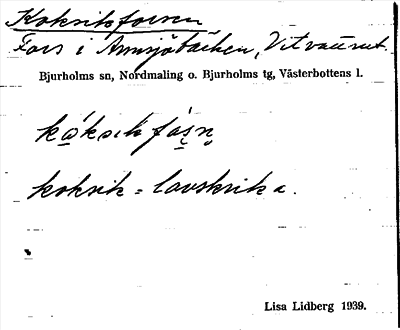 Koksikforsen
Fors i Armsjöbäcken, Vitvattnet.
Bjurholms sn, Nordmaling o. Bjurholms tg, Västerbottens l.
kåksik fåsn
koksik = lavskrika.
Lisa Lidberg 1939.